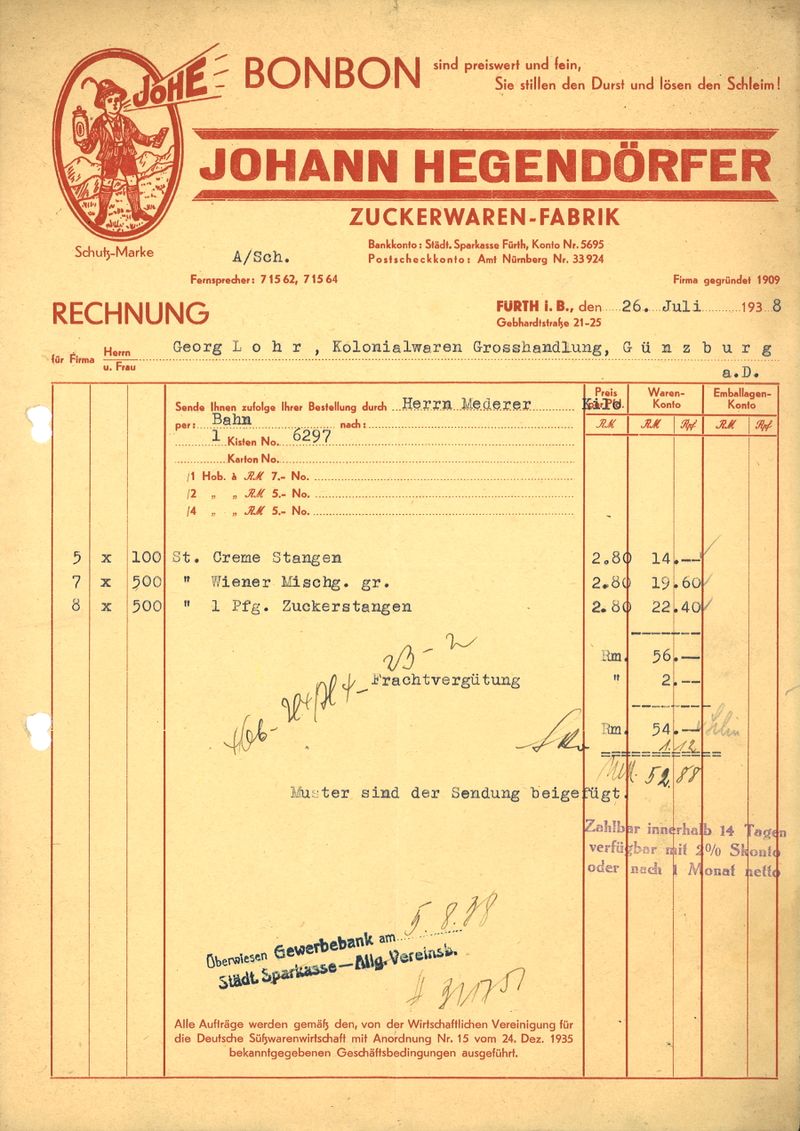 JOHE BONBON sind preiswert und fein,
Sie stillen den Durst und lösen den Schleim!
JOHANN HEGENDÖRFER
ZUCKERWAREN-FABRIK
Schutz-Marke
Bankkonto: Städt. Sparkasse Fürth, Konto Nr. 5695
A/Sch.
Postscheckkonto: Amt Nürnberg Nr. 33924
Fernsprecher: 71562, 71564
Firma gegründet 1909
RECHNUNG
FÜRTH i. B., den 26. Juli 1938
Gebhardtstraße 21-25
für Firma Herrn u. Frau Georg Lohr, Kolonialwaren Grosshandlung, Günzburg
a.D.
Sende Ihnen zufolge Ihrer Bestellung durch Herrn Mederer
per: Bahn nach:
1 Kisten No. 6297
Karton No.
/1 Hob. à RM 7.- No.
/2 „ „ RM 5.- No.
/4 „ „ RM 5.- No.
Preis Kilo
Waren-Konto
Emballagen-Konto
RM RM Rpf. RM Rpf.
5 x 100 St. Creme Stangen 2.80 14.—
7 x 500 " Wiener Mischg. gr. 2.80 19.60
8 x 500 " 1 Pfg. Zuckerstangen 2.80 22.40
Rm. 56.—
Frachtvergütung " 2.—
Rm. 54.—
1.12
52.88
Muster sind der Sendung beigefügt.
Zahlbar innerhalb 14 Tagen
verfügbar mit 2% Skonto
oder nach 1 Monat netto
Überwiesen Gewerbebank am 5.8.38
Städt. Sparkasse—Allg. Vereinsb.
Alle Aufträge werden gemäß den, von der Wirtschaftlichen Vereinigung für
die Deutsche Süßwarenwirtschaft mit Anordnung Nr. 15 vom 24. Dez. 1935
bekanntgegebenen Geschäftsbedingungen ausgeführt.